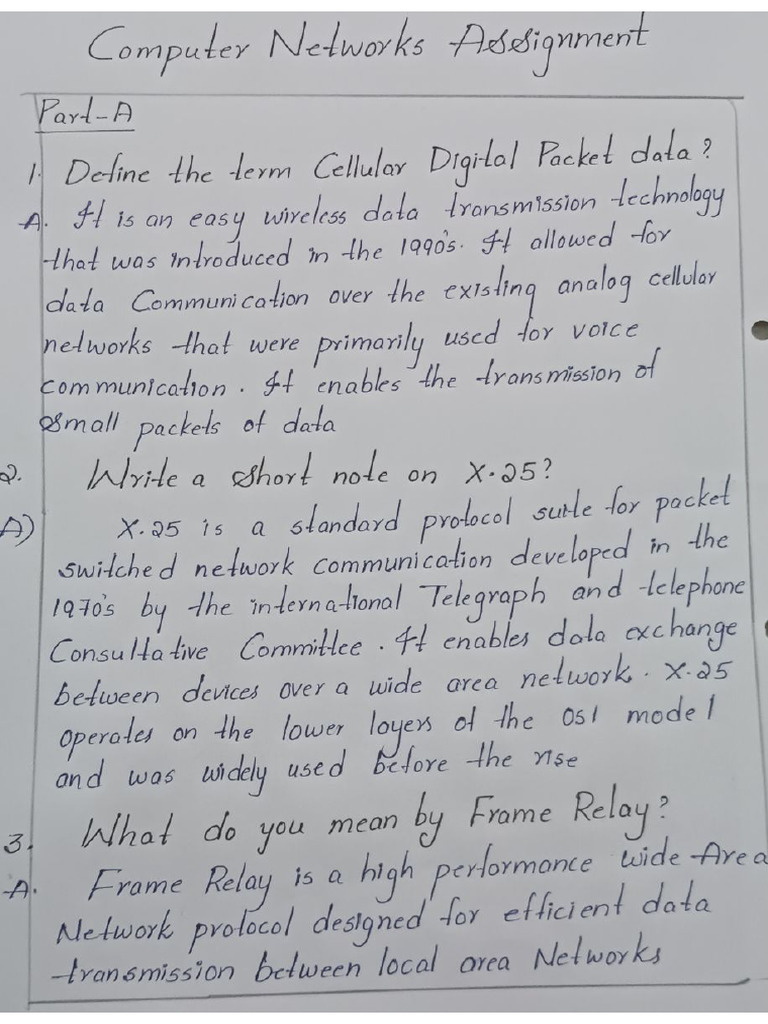 Computer Networks Assignment
Part-A
1. Define the term Cellular Digital Packet data?
A. It is an easy wireless data transmission technology
that was introduced in the 1990's. It allowed for
data Communication over the existing analog cellular
networks that were primarily used for voice
communication. It enables the transmission of
small packets of data
2. Write a short note on X.25?
A) X.25 is a standard protocol suite for packet
switched network communication developed in the
1970's by the international Telegraph and telephone
Consultative Committee. It enables data exchange
between devices over a wide area network. X.25
operates on the lower layers of the OSI model
and was widely used before the rise
3. What do you mean by Frame Relay?
A. Frame Relay is a high performance wide Area
Network protocol designed for efficient data
transmission between local area Networks